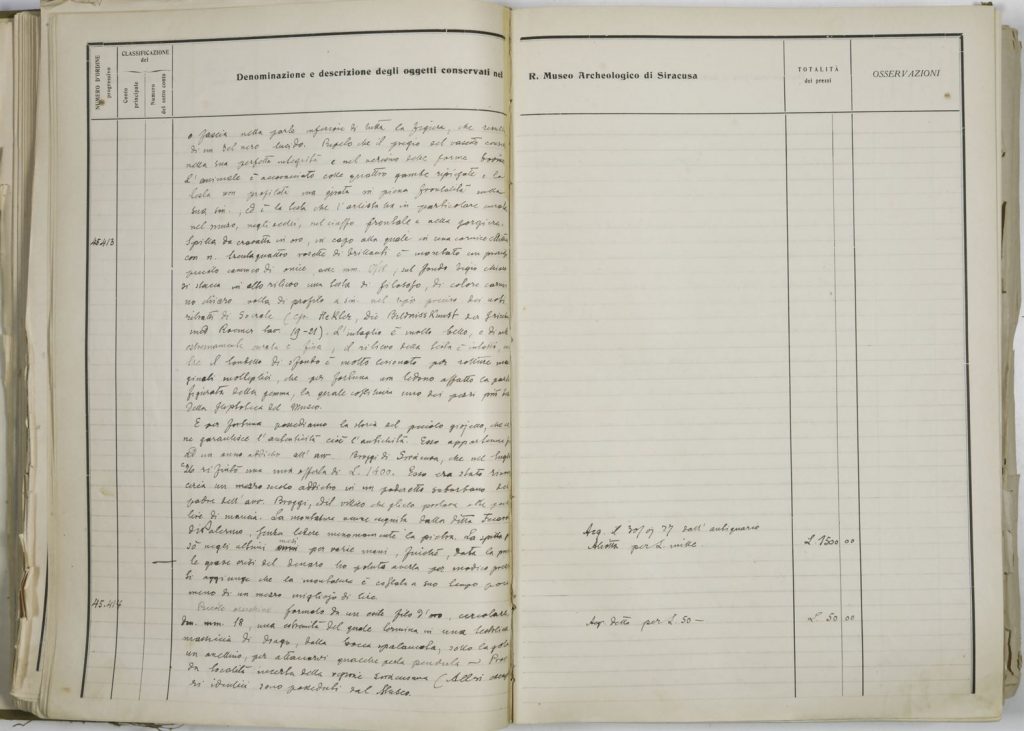 NUMERO D'ORDINE progressivo
CLASSIFICAZIONE del
Conto principale
Numero del sotto conto
Denominazione e descrizione degli oggetti conservati nel R. Museo Archeologico di Siracusa
TOTALITÀ dei prezzi
OSSERVAZIONI
o fascia nella parte inferiore di tutta la figura, che
di un bel nero lucido. il pregio del vasetto
nella sua perfetta integrità e nel delle forme
L'animale è accovacciato colle quattro gambe ripiegate e la
testa non profilata ma girata in piena frontalità sulla
sua sin., ed è la testa che l'artista ha in particolare
nel muso, negli occhi, nel ciuffo frontale e nella gorgiera.
45413
Spilla da cravatta in oro, in capo alla quale in una cornice
con n. trentaquattro rosette di brillanti è montato un
piccolo cammeo di onice, mm. sul fondo grigio chiaro
di stacca in alto rilievo una testa di filosofo, di colore
no chiaro volta di profilo a sin. nel tipo preciso dei noti
ritratti di Socrate (cfr. Hekler, Die Bildnisskunst der Griechen
und Roemer tav. 19-21). L'intaglio è molto bello, e di
estremamente curata e fine, il rilievo della testa è intatto,
tre il tondello di sfondo è molto per rotture
ginali molteplici, che per fortuna non ledono affatto la parte
figurata della gemma, la quale costituisce uno dei pezzi più
della Glyptoteca del Museo.
E per fortuna possediamo la storia del piccolo gioiello, che
ne garantisce l'autenticità cioè l'antichità. Esso appartenne
ad un anno addietro all'avv. Broggi di Siracusa, che nel luglio
26 rifiutò una mia offerta di L. 1400. Esso era stato
circa un mezzo secolo addietro in un poderetto suburbano del
padre dell'avv. Broggi, dal villico che glielo portava alle
di mancia. La montatura venne eseguita dalla ditta
di Palermo, senza ledere menomamente la pietra. La spilla
sò negli ultimi mesi per varie mani, finchè, data la
le grave crisi del denaro ho potuto averla per modico
Si aggiunge che la montatura è costata a suo tempo poco
meno di un mezzo migliajo di lire.
Acq. il 30/ 27 dall'antiquario
per L. mille
L. 1300 00
45.414
Piccolo orecchino formato da un filo d'oro, circolare
dm. mm. 18, una estremità del quale termina in una testolina
massiccia di drago, dalla bocca spalancata, sotto la gola
un anellino, per attaccarvi qualche perla pendula —
da località incerta della regione siracusana (Altri
ri identici sono posseduti dal Museo.
Acq. detto per L. 50 —
L. 50 00